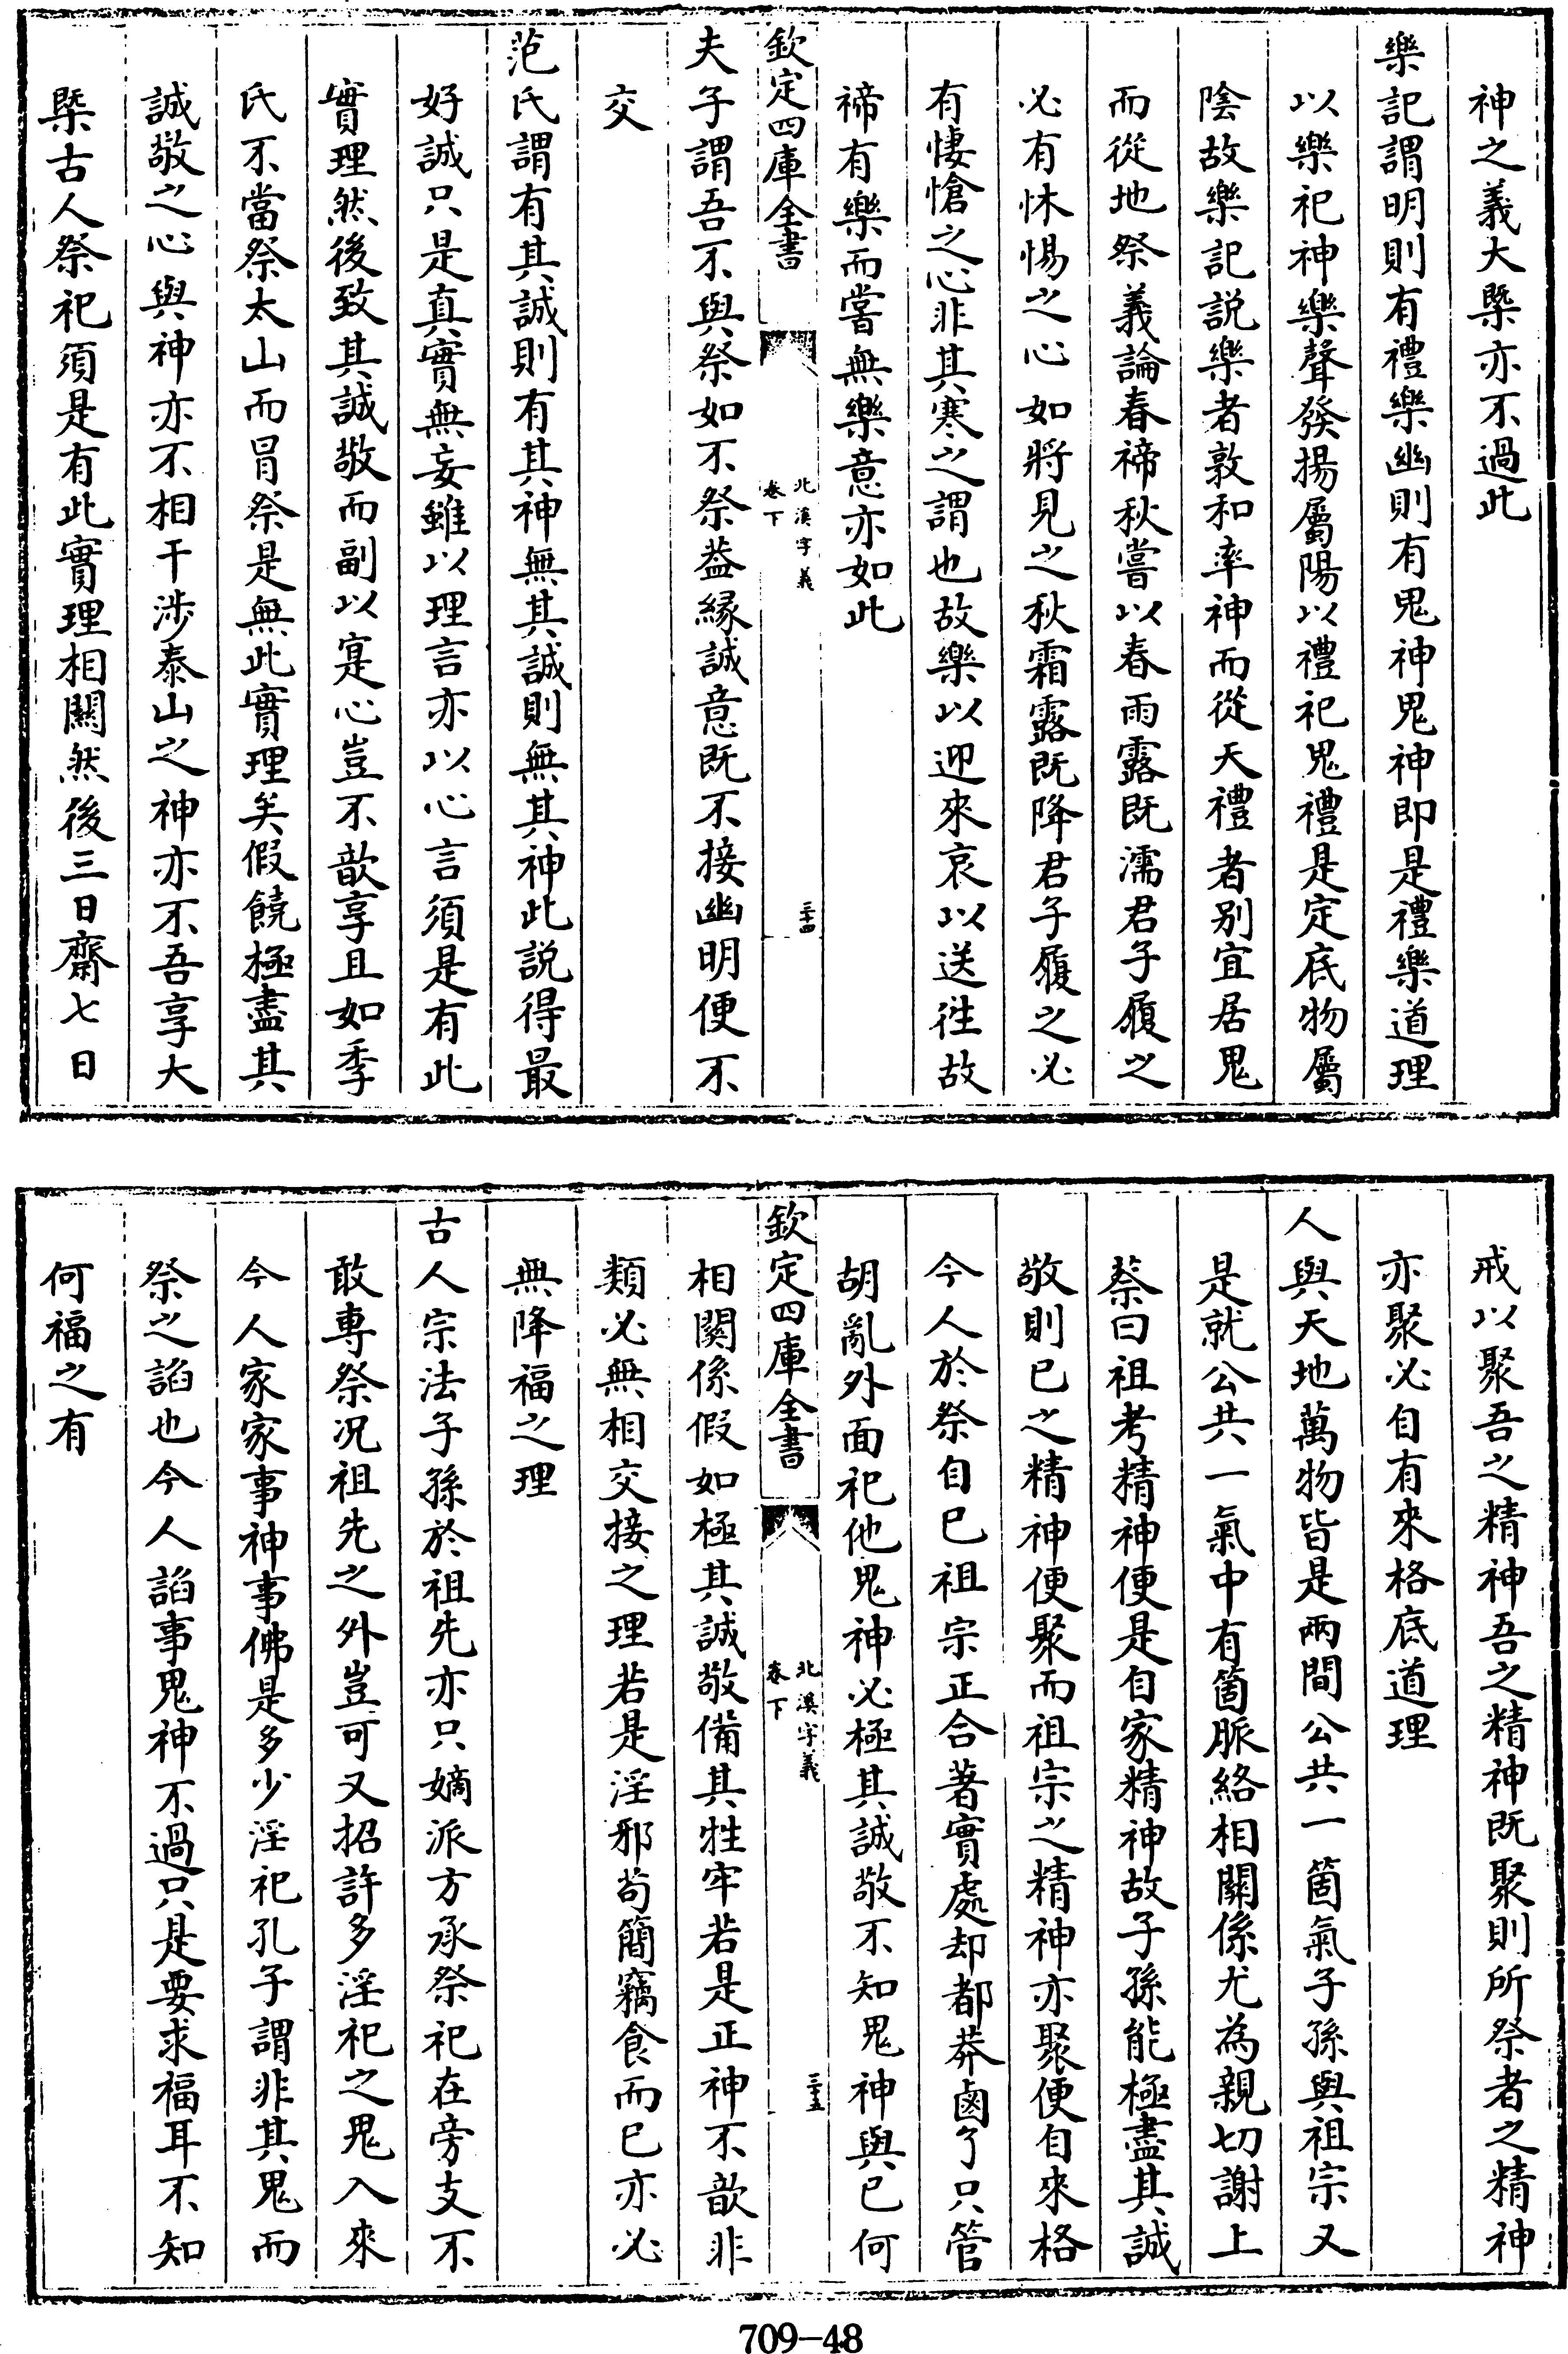 神之義大槩亦不過此
樂記謂明則有禮樂幽則有鬼神鬼神即是禮樂道理
以樂祀神樂聲發揚屬陽以禮祀鬼禮是定底物屬
陰故樂記説樂者敦和率神而從天禮者别宜居鬼
而從地祭義論春禘秋嘗以春雨露既濡君子履之
必有怵惕之心如將見之秋霜露既降君子履之必
有悽愴之心非其寒之謂也故樂以迎來哀以送往故
禘有樂而嘗無樂意亦如此
欽定四庫全書
北溪字義
卷下
三十四
夫子謂吾不與祭如不祭葢縁誠意既不接幽明便不
交
范氏謂有其誠則有其神無其誠則無其神此説得最
好誠只是真實無妄雖以理言亦以心言須是有此
實理然後致其誠敬而副以寔心豈不歆享且如季
氏不當祭太山而冒祭是無此實理矣假饒極盡其
誠敬之心與神亦不相干涉泰山之神亦不吾享大
槩古人祭祀須是有此實理相關然後三日齋七日
戒以聚吾之精神吾之精神既聚則所祭者之精神
亦聚必自有來格底道理
人與天地萬物皆是兩間公共一箇氣子孫與祖宗又
是就公共一氣中有箇脈絡相關係尤為親切謝上
蔡曰祖考精神便是自家精神故子孫能極盡其誠
敬則已之精神便聚而祖宗之精神亦聚便自來格
今人於祭自已祖宗正合著實處却都莽鹵了只管
胡亂外面祀他鬼神必極其誠敬不知鬼神與已何
欽定四庫全書
北溪字義
卷下
三十五
相關係假如極其誠敬備其牲牢若是正神不歆非
類必無相交接之理若是淫邪茍簡竊食而已亦必
無降福之理
古人宗法子孫於祖先亦只嫡派方承祭祀在旁支不
敢專祭况祖先之外豈可又招許多淫祀之鬼入來
今人家家事神事佛是多少淫祀孔子謂非其鬼而
祭之諂也今人諂事鬼神不過只是要求福耳不知
何福之有
709-48